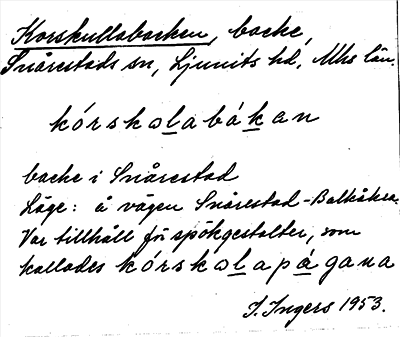 Korskullabacken, backe,
Snårestads sn, Ljunits hd, Mhs län.
kórskɷlabákan
backe i Snårestad
Läge: å vägen Snårestad-Balkåkra.
Var tillhåll för spökgestalter, som
kallades kórskɷlapágana
I. Ingers 1953.